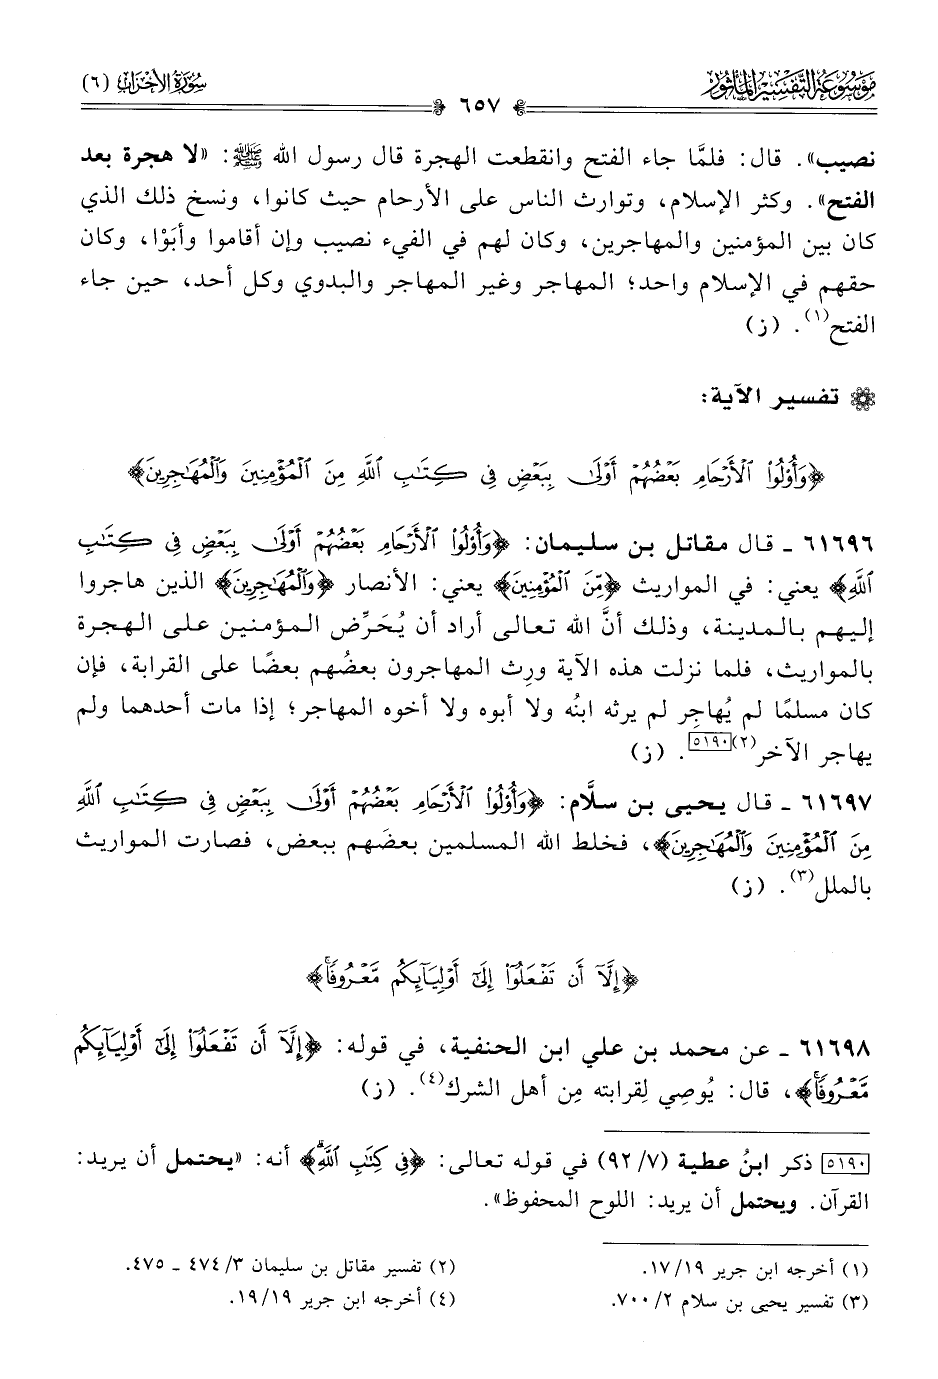 مَوْسُوعَةُ التَّفْسِيرِ المَأْثُور
٦٥٧
سُورَةُ الأَحْزَاب (٦)
نصيب». قال: فلمَّا جاء الفتح وانقطعت الهجرة قال رسول الله ﷺ: «لا هجرة بعد
الفتح». وكثر الإسلام، وتوارث الناس على الأرحام حيث كانوا، ونسخ ذلك الذي
كان بين المؤمنين والمهاجرين، وكان لهم في الفيء نصيب وإن أقاموا وأبَوْا، وكان
حقهم في الإسلام واحد؛ المهاجر وغير المهاجر والبدوي وكل أحد، حين جاء
الفتح(١). (ز)
تفسير الآية:
﴿وَأُوْلُواْ ٱلْأَرْحَامِ بَعْضُهُمْ أَوْلَىٰ بِبَعْضٍ فِى كِتَٰبِ ٱللَّهِ مِنَ ٱلْمُؤْمِنِينَ وَٱلْمُهَٰجِرِينَ﴾
٦١٦٩٦ ـ قال مقاتل بن سليمان: ﴿وَأُوْلُواْ ٱلْأَرْحَامِ بَعْضُهُمْ أَوْلَىٰ بِبَعْضٍ فِى كِتَٰبِ
ٱللَّهِ﴾ يعني: في المواريث ﴿مِّنَ ٱلْمُؤْمِنِينَ﴾ يعني: الأنصار ﴿وَٱلْمُهَٰجِرِينَ﴾ الذين هاجروا
إليهم بالمدينة، وذلك أنَّ الله تعالى أراد أن يُحَرِّض المؤمنين على الهجرة
بالمواريث، فلما نزلت هذه الآية ورِث المهاجرون بعضُهم بعضًا على القرابة، فإن
كان مسلمًا لم يُهاجِر لم يرثه ابنُه ولا أبوه ولا أخوه المهاجر؛ إذا مات أحدهما ولم
يهاجر الآخر(٢)[٥١٩٠]. (ز)
٦١٦٩٧ ـ قال يحيى بن سلَّام: ﴿وَأُوْلُواْ ٱلْأَرْحَامِ بَعْضُهُمْ أَوْلَىٰ بِبَعْضٍ فِى كِتَٰبِ ٱللَّهِ
مِنَ ٱلْمُؤْمِنِينَ وَٱلْمُهَٰجِرِينَ﴾، فخلط الله المسلمين بعضَهم ببعض، فصارت المواريث
بالملل(٣). (ز)
﴿إِلَّآ أَن تَفْعَلُوٓاْ إِلَىٰٓ أَوْلِيَآئِكُم مَّعْرُوفًا﴾
٦١٦٩٨ ـ عن محمد بن علي ابن الحنفية، في قوله: ﴿إِلَّآ أَن تَفْعَلُوٓاْ إِلَىٰٓ أَوْلِيَآئِكُم
مَّعْرُوفًا﴾، قال: يُوصِي لِقرابته مِن أهل الشرك(٤). (ز)
[٥١٩٠] ذكر ابنُ عطية (٧/ ٩٢) في قوله تعالى: ﴿فِى كِتَٰبِ ٱللَّهِ﴾ أنه: «يحتمل أن يريد:
القرآن. ويحتمل أن يريد: اللوح المحفوظ».
(١) أخرجه ابن جرير ١٩/ ١٧.
(٢) تفسير مقاتل بن سليمان ٣/ ٤٧٤ ـ ٤٧٥.
(٣) تفسير يحيى بن سلام ٢/ ٧٠٠.
(٤) أخرجه ابن جرير ١٩/ ١٩.